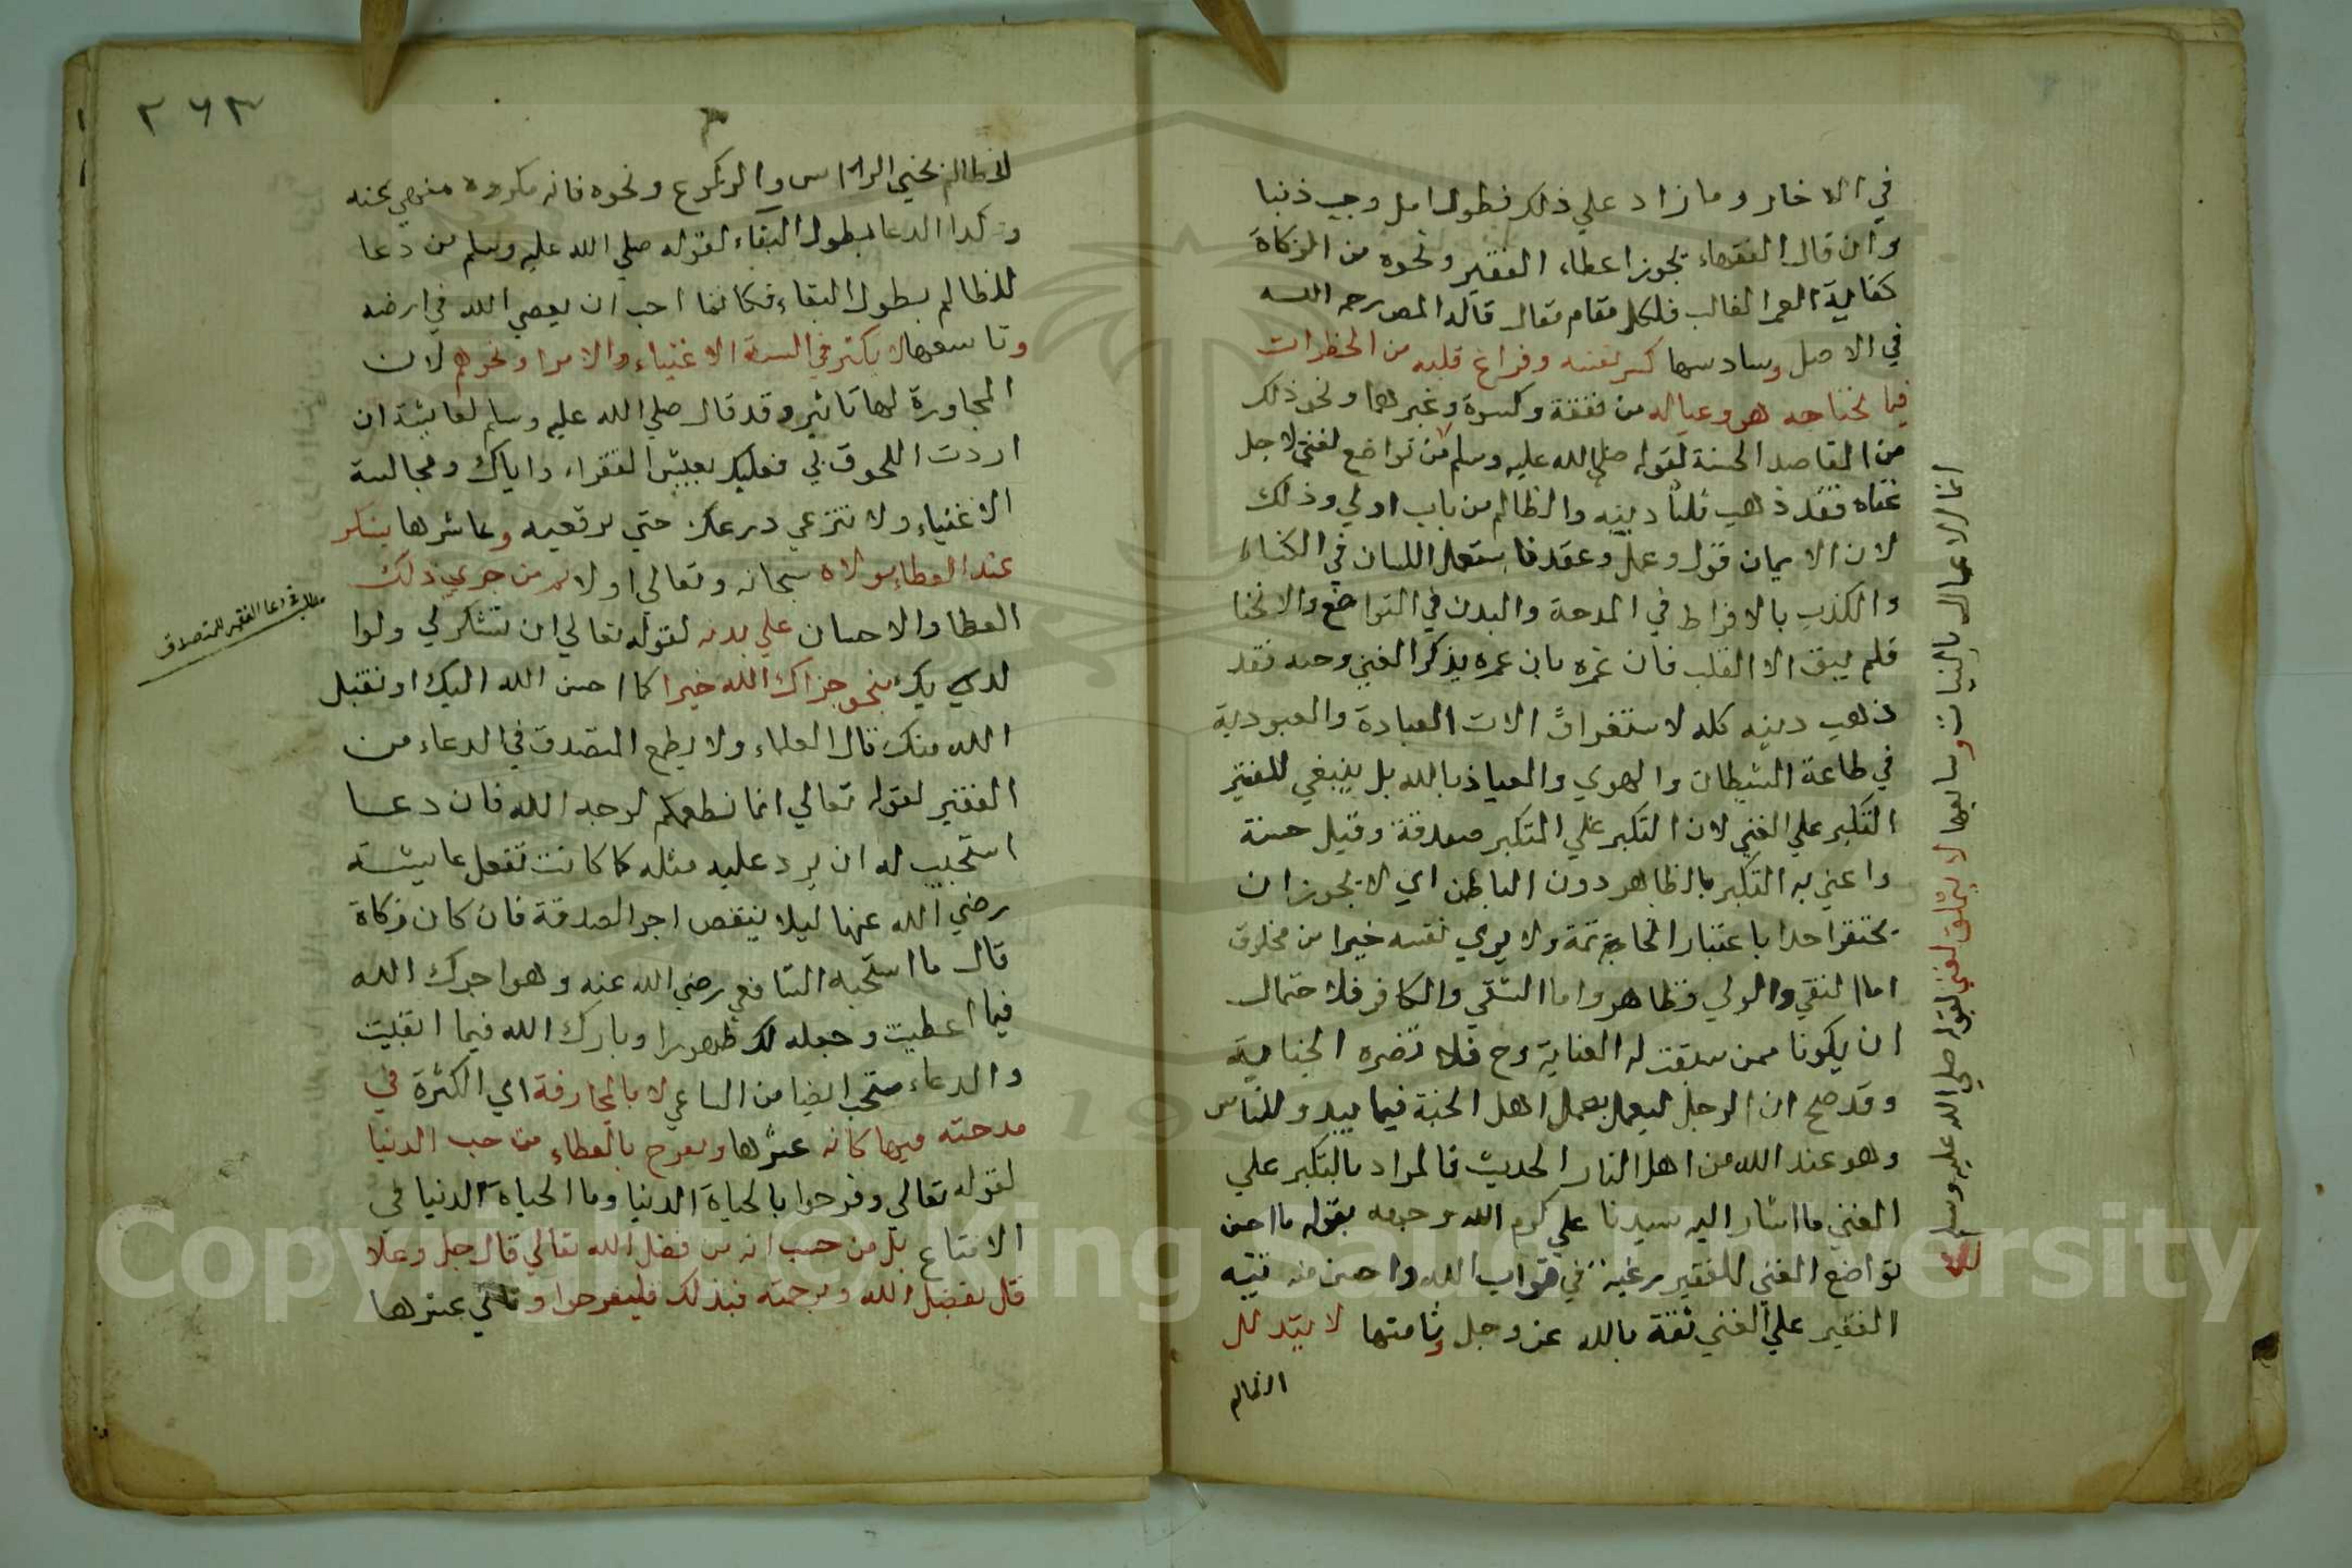 في الادخار وما زاد علي ذلك فطول امل وحب ذنبا
وان قال الفقهاء يجوز اعطاء الفقير ونحوه من الزكاة
كفاية العمر الغالب فلكل مقام مقال قاله المص رحمه الله
في الاصل وسادسها كسر نفسه وفراغ قلبه من الخطرات
فيما يحتاجه هو وعياله من نفقة وكسوة وغيرهما ونحو ذلك
من المقاصد الحسنة لقوله صلي الله عليه وسلم من تواضع لغني لاجل
غناه فقد ذهب ثلثا دينه والظالم من باب اولي وذلك
لان الايمان قول وعمل وعقد فاستعمل اللسان في الثناء
والكذب بالافراط في المدحة والبدن في التواضع والانحنا
فلم يبق الا القلب فان غره بان عمره بذكر الغني وحبه فقد
ذهب دينه كله لاستغراق الات العبادة والعبودية
في طاعة الشيطان والهوي والعياذ بالله بل ينبغي للفقير
التكبر علي الغني لان التكبر علي المتكبر صدقة وقيل حسنة
واعني به التكبر بالظاهر دون الباطن اي لا يجوز ان
يحتقر احدا باعتبار الخاتمة ولا يري نفسه خيرا من مخلوق
اما التقي والولي فظاهر واما الشقي والكافر فلاحتمال
ان يكونا ممن سبقت له العناية وح فلا تضره الجناية
وقد صح ان الرجل ليعمل بعمل اهل الجنة فيما يبدو للناس
وهو عند الله من اهل النار الحديث فالمراد بالتكبر علي
الغني ما اشار اليه سيدنا علي كرم الله وجهه بقوله ما احسن
تواضع الغني للفقير رغبة في ثواب الله واحسن منه تيه
الفقير علي الغني ثقة بالله عز وجل وثامنها لا يتذلل
الظالم
انما الاعمال بالنيات وسابعها لا يتملق لغني لقوله صلي الله عليه وسلم
٢٦٣
لظالم بحني الراس والركوع ونحوه فانه مكروه منهي عنه
وكذا الدعا بطول البقاء لقوله صلي الله عليه وسلم من دعا
للظالم بطول البقاء فكانما احب ان يعصي الله في ارضه
وتاسعها لا يكثر في السنة الاغنياء والامرا ونحوهم لان
المجاورة لها تاثير وقد قال صلي الله عليه وسلم لعايشة ان
اردت اللحوق بي فعليك بعيش الفقراء واياك ومجالسة
الاغنياء ولا تنزعي درعك حتي ترقعيه وعاشرها يشكر
عند العطاء مولاه سبحانه وتعالي اولا ثم من جري ذلك
العطا والاحسان علي يديه لقوله تعالي ان تشكر لي ولوا
لديك بنحو جزاك الله خيرا كما احسن الله اليك او تقبل
الله منك قال العلماء ولا يطمع المتصدق في الدعاء من
الفقير لقوله تعالي انما نطعمكم لوجه الله فان دعا
استحب له ان يرد عليه مثله كما كانت تفعل عايشة
رضي الله عنها ليلا ينقص اجر الصدقة فان كان زكاة
قال ما استحبه الشافعي رضي الله عنه وهو اجرك الله
فيما اعطيت وجعله لك طهورا وبارك الله فيما ابقيت
والدعاء مستحب ايضا من الساعي لا بالمجازفة اي الكثرة في
مدحته فيها كانه عشرها ويفرح بالعطاء من حب الدنيا
لقوله تعالي وفرحوا بالحياة الدنيا وما الحياة الدنيا في
الا متاع بل من حسب انه من فضل الله تعالي قال جل وعلا
قل بفضل الله وبرحمته فبذلك فليفرحوا وثاني عشرها
مطلب في دعا الفقير للمتصدق
Copyright © King Saud University